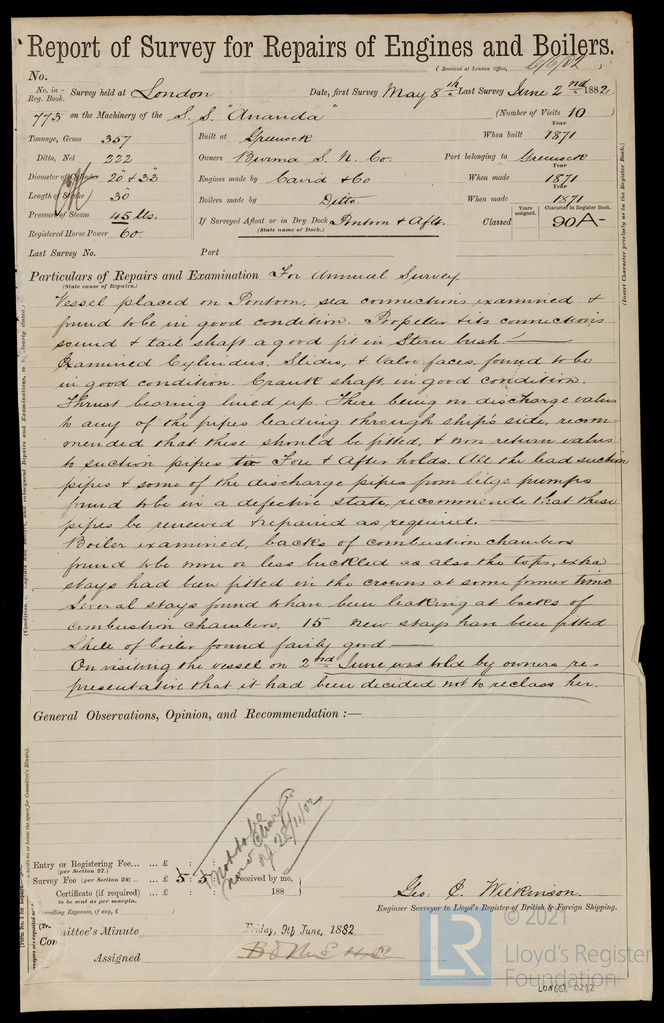 Report of Survey for Repairs of Engines and Boilers.
(Received at London Office, 6/6/82)
No.
No. in Reg. Book. Survey held at London Date, first Survey May 8th Last Survey June 2nd 1882.
773 on the Machinery of the S. S. "Ananda" (Number of Visits 10)
Tonnage, Gross 357 Built at Greenock When built Year 1871
Ditto, Net 222 Owners Burma S. N. Co. Port belonging to Greenock
Diameter of Cylinder 20" & 33" Engines made by Caird & Co When made Year 1871
Length of Stroke 30" Boilers made by Ditto When made Year 1871
Pressure of Steam 45 lbs. If Surveyed Afloat or in Dry Dock Pontoon & Aflt. Classed Years assigned. Character in Register Book. 90A-
(State name of Dock.)
Registered Horse Power 60
(Insert Character precisely as in the Register Book.)
Last Survey No. Port
Particulars of Repairs and Examination For Annual Survey
(State cause of Repairs.)
Vessel placed on Pontoon, sea connections examined &
found to be in good condition. Propeller & its connections
sound & tail shaft a good fit in Stern bush.
Examined Cylinders, Slides, & Valve faces, found to be
in good condition. Crank shaft in good condition.
Thrust bearing lined up. There being no discharge valves
to any of the pipes leading through ship's side, recom-
mended that these should be fitted, & non return valves
to suction pipes to Fore & After holds. All the lead suction
pipes & some of the discharge pipes from bilge pumps
found to be in a defective state, recommende that these
pipes be renewed & repaired as required.
Boiler examined, backs of combustion chambers
found to be more or less buckled as also the tops, extra
stays had been fitted in the crowns at some former time
Several stays found to han been leaking at backs of
combustion chambers, 15 new stays han been fitted
Shell of boiler found fairly good
On visiting the vessel on 2nd June was told by owners re-
presentative that it had been decided not to reclass her.
General Observations, Opinion, and Recommendation :—
Not to be
now Chart
of 28/11/02
Entry or Registering Fee... ... £ : :
(per Section 27.)
Survey Fee (per Section 28) .. ... £ 5 : 5 : received by me,
Certificate (if required) ... £ : : 188
to be sent as per margin.
Travelling Expenses, if any, £ )
Geo. C. Wilkinson
Engineer Surveyor to Lloyd's Register of British & Foreign Shipping.
Committee's Minute Friday, 9th June, 1882
Assigned
LR
© 2021
Lloyd's Register
Foundation
LON668-0282